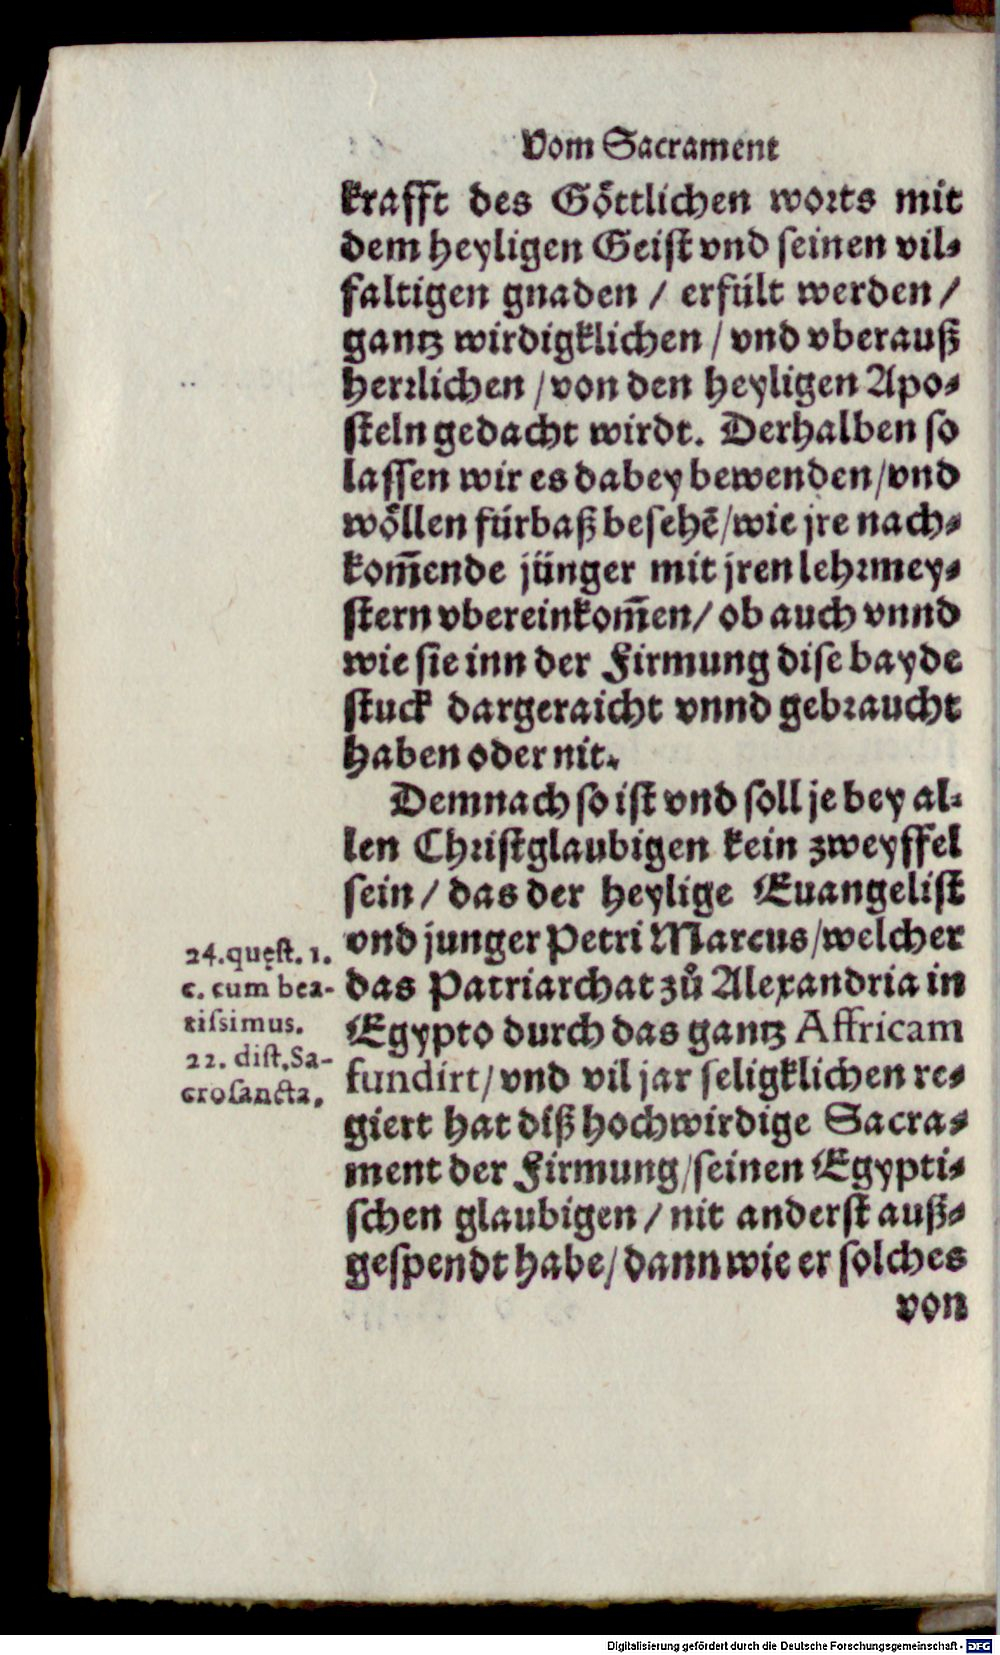 Vom Sacrament
krafft des Göttlichen worts mit
dem heyligen Geist vnd seinen vil-
faltigen gnaden / erfült werden /
gantz wirdigklichen / vnd vberauß
herrlichen / von den heyligen Apo-
steln gedacht wirdt. Derhalben so
lassen wir es dabey bewenden / vnd
wöllen fürbaß besehē / wie jre nach-
kom̄ende jünger mit jren lehrmey-
stern vbereinkom̄en / ob auch vnnd
wie sie inn der Firmung dise bayde
stuck dargeraicht vnnd gebraucht
haben oder nit.
Demnach so ist vnd soll je bey al-
len Christglaubigen kein zweyffel
sein / das der heylige Euangelist
vnd junger Petri Marcus / welcher
das Patriarchat zů Alexandria in
Egypto durch das gantz Affricam
fundirt / vnd vil jar seligklichen re-
giert hat diß hochwirdige Sacra-
ment der Firmung / seinen Egypti-
schen glaubigen / nit anderst auß-
gespendt habe / dann wie er solches
von
24. quęst. 1.
c. cum bea-
tissimus.
22. dist. Sa-
crosancta.
Digitalisierung gefördert durch die Deutsche Forschungsgemeinschaft - DFG